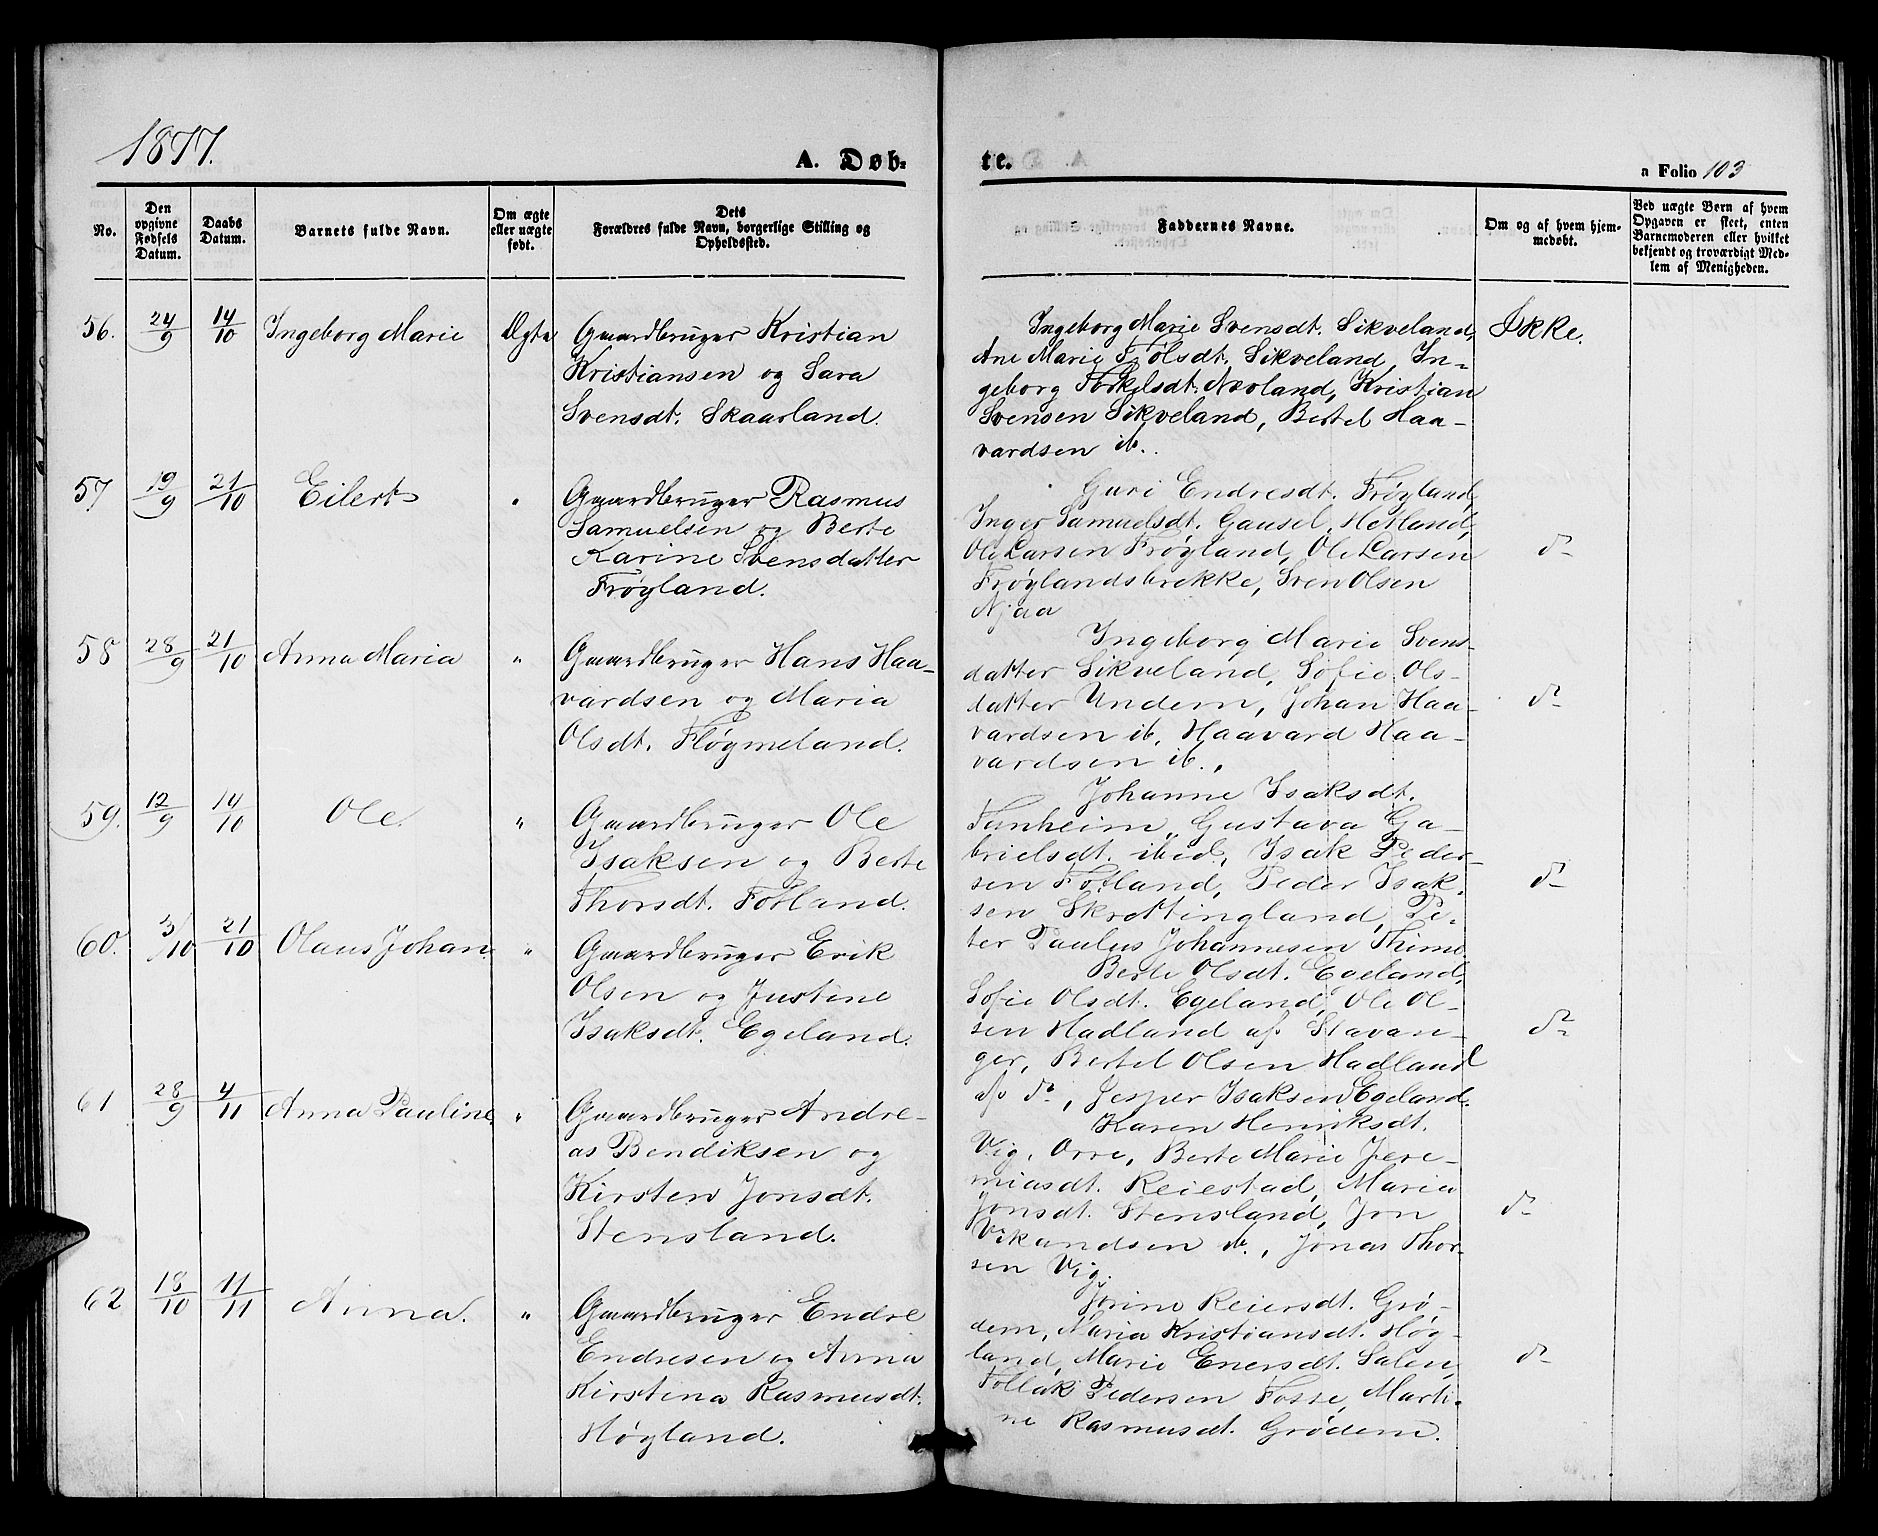 1877.
A. Døb-
te.
a Folio 103
No.
Den
opgivne
Fødsels
Datum.
Daabs
Datum.
Barnets fulde Navn.
Om ægte
eller uægte
født.
Dets
Forældres fulde Navn, borgerlige Stilling og
Opholdssted.
Faddernes Navne.
Om og af hvem hjem-
medøbt.
Ved uægte Børn af hvem
Opgaven er skeet, enten
Barnemoderen eller hvilket
bekjendt og troværdigt Med-
lem af Menigheden.
56. 24/9 14/10 Ingeborg Marie Ægte
Gaardbruger Kristian
Kristiansen og Sara
Svensdt. Skaarland.
Ingeborg Marie Svensdt. Sikveland,
Ane Marie Sikveland, In-
geborg Torkelsdt. Næoland, Kristian
Svensen Sikveland, Bertel Haa-
vardsen ib.
Ikke.
57 19/9 21/10 Eilert "
Gaardbruger Rasmus
Samuelsen og Berte
Karine Svensdatter
Frøyland.
Guri Endresdt. Frøyland,
Inger Samuelsdt. Gausel, Hetland,
Ole Larsen Frøyland, Ole Larsen
Frøylandsbrekke, Sven Olsen
Njaa
do
58 28/9 21/10 Anna Maria "
Gaardbruger Hans Haa-
vardsen og Maria
Olsdt. Fløgmeland.
Ingeborg Marie Svens-
datter Sikveland, Sofie Ols-
datter Undem, Johan Haa-
vardsen ib, Haavard Haa-
vardsen ib.,
do
59. 12/9 14/10 Ole. "
Gaardbruger Ole
Isaksen og Berte
Thorsdt. Fotland.
Johanne Isaksdt.
Tunheim, Gustava Ga-
brielsdt. ibid., Isak Peder-
sen Fotland, Peder Isak-
sen Skrettingland, Pe-
ter Paulus Johannesen Thime.
do
60. 3/10 21/10 Olaus Johan "
Gaardbruger Erik
Olsen og Justine
Isaksdt. Egeland.
Berte Olsdt. Egeland,
Sofie Olsdt. Egeland, Ole Ol-
sen Hadland af Stavan-
ger, Bertel Olsen Hadland
af do, Jesper Isaksen Egeland.
do
61 28/9 4/11 Anna Pauline "
Gaardbruger Andre-
as Bendiksen og
Kirsten Jonsdt.
Stensland.
Karen Henriksdt.
Vig, Orre, Berte Marie Jere-
miasdt. Reiestad, Maria
Jonsdt. Stensland, Jon
Vikandsen ib., Jonas Thor-
sen Vig.
do
62 18/10 11/11 Anna. "
Gaardbruger Endre
Endresen og Anna
Kirstina Rasmusdt.
Høyland.
Jorine Reiersdt. Grø-
dem, Maria Kristiansdt. Høy-
land, Marie Enersdt. Salen,
Tollak Pedersen Fosse, Marti-
ne Rasmusdt. Grødem.
do